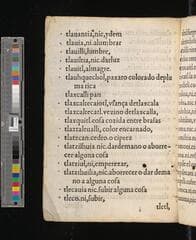 tlauantia, nic, ydem
tlauia, ni alumbrar
tlauilli, lumbre,
tlauiltia, nic. dar luz
tlauitl, almagre.
tlauhquechol, paxaro colorado de pluma rica
tlaxcalli pan
tlaxcaltecaiotl, vsança de tlaxcala
tlaxcaltecatl. vezino de tlaxcalla,
tlaxquitl cosa cozida entre brasas
tlaztalcualli, color encarnado,
tlatzcan. cedro. o cipres
nic. dar demano o aborrecer alguna cosa
nic, emperezar,
nic. aborrecer o dar demano a alguna cosa
tlecauia nic. subir alguna cosa
tleco. ni, subir,
tlecl,